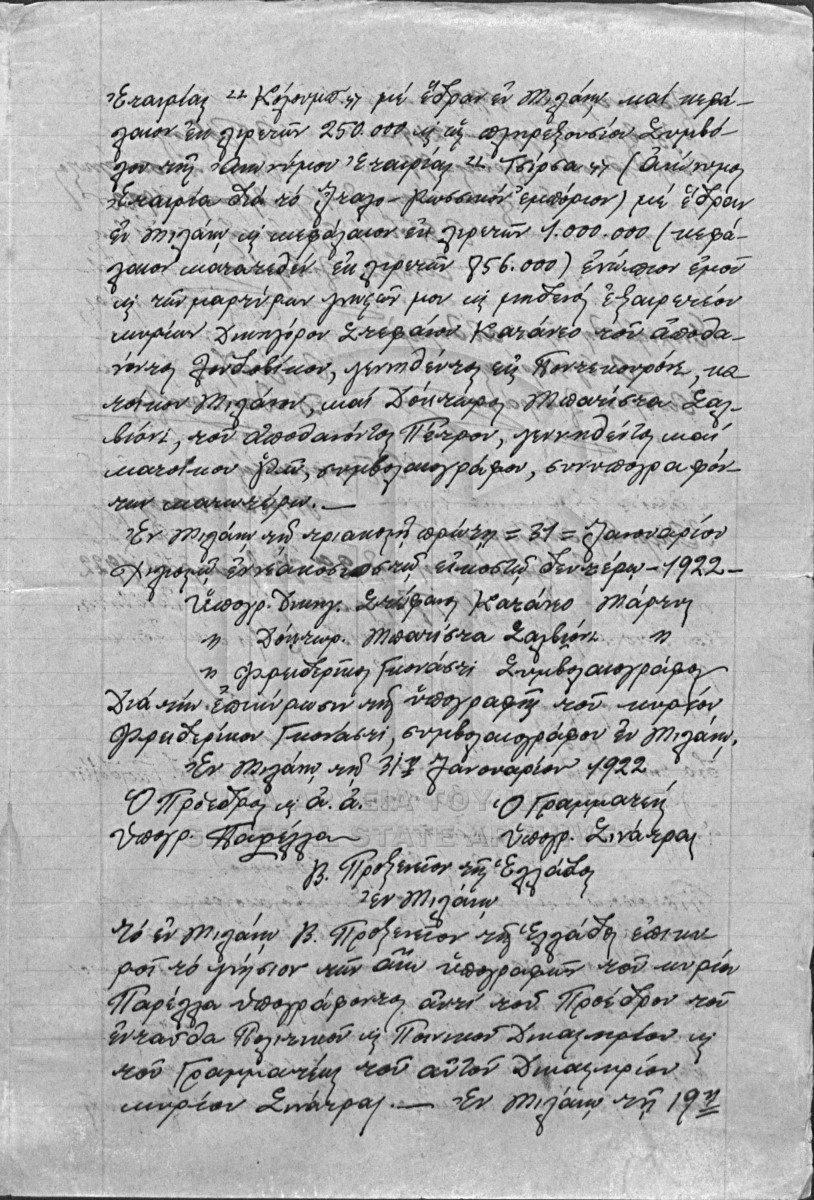 Ἑταιρίας "Κόλουμπ." μέ ἕδραν ἐν Μιλάνῳ καί κεφά-
λαιον ἐκ λιρετῶν 250.000 καὶ ὡς πληρεξουσίου Συμβό-
λου τῆς Ἀνωνύμου Ἑταιρίας "Τσίρσα" (Ἀνώνυμος
Ἑταιρία διά τό Ἰταλο-Ρωσσικόν ἐμπόριον) μέ ἕδραν
ἐν Μιλάνῳ καὶ κεφάλαιον ἐκ λιρετῶν 1.000.000 (κεφά-
λαιον κατατεθέν ἐκ λιρετῶν 856.000) ἐνώπιον ἐμοῦ
καὶ τῶν μαρτύρων γνωστῶν μοι καὶ μηδενός ἐξαιρετέου
κυρίων Δικηγόρου Στεφάνου Κατάνεο τοῦ ἀποθα-
νόντος Λουδοβίκου, γεννηθέντος εἰς Ποντεκουρόνε, κα-
τοίκου Μιλάνου, καί Δόκτωρος Μπατίστα Σαλ-
βιόνι, τοῦ ἀποθανόντος Πέτρου, γεννηθέντος καί
κατοίκου ὧδε, συμβολαιογράφου, συνυπογραφόν-
των κατωτέρω.—
Ἐν Μιλάνῳ τῇ τριακοστῇ πρώτῃ = 31 = Ἰανουαρίου
χιλιοστῷ ἐννεακοσιοστῷ εἰκοστῷ δευτέρῳ - 1922 -
Ὑπογρ. Δικηγ. Στέφανος Κατάνεο Μάρτυς
" Δόκτωρ. Μπατίστα Σαλβιόνι "
" Φρειδερίκος Γκονάστι Συμβολαιογράφος
Διά τήν ἐπικύρωσιν τῆς ὑπογραφῆς τοῦ κυρίου
Φρειδερίκου Γκονάστι, συμβολαιογράφου ἐν Μιλάνῳ.
Ἐν Μιλάνῳ τῇ 31ῃ Ἰανουαρίου 1922
Ὁ Πρόεδρος καὶ ἀ. ἀ. Ὁ Γραμματεύς
Ὑπογρ. Παρέλλα ὑπογρ. Σινάτρας
Β. Προξενεῖον τῆς Ἑλλάδος
ἐν Μιλάνῳ
Τό ἐν Μιλάνῳ Β. Προξενεῖον τῆς Ἑλλάδος ἐπικυ
ροῖ τό γνήσιον τῶν ἄνω ὑπογραφῶν τοῦ κυρίου
Παρέλλα ὑπογράφοντος ἀντί τοῦ Προέδρου τοῦ
ἐνταῦθα Πολιτικοῦ καὶ Ποινικοῦ Δικαστηρίου καὶ
τοῦ Γραμματέως τοῦ αὐτοῦ Δικαστηρίου
κυρίου Σινάτρας.— Ἐν Μιλάνῳ τῇ 19ῃ